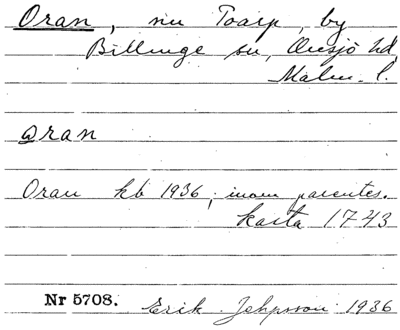 Oran, nu Toarp, by
Billinge sn, Onsjö hd,
Malm. l.
Oran
Oran kb 1936; inom parentes.
karta 1743
Nr 5708. Erik Jeppsson 1936